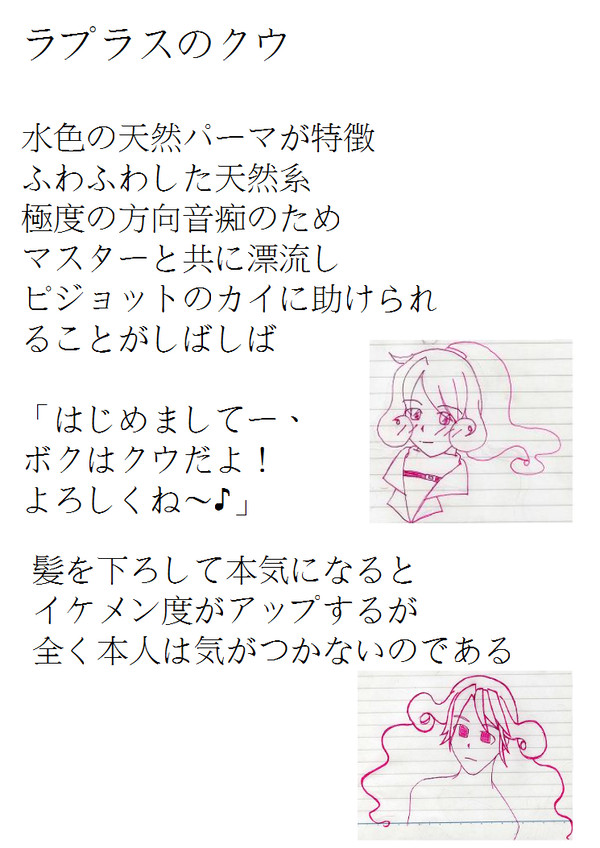 ラプラスのクウ
水色の天然パーマが特徴
ふわふわした天然系
極度の方向音痴のため
マスターと共に漂流し
ピジョットのカイに助けられ
ることがしばしば
「はじめましてー、
ボクはクウだよ！
よろしくね～♪」
髪を下ろして本気になると
イケメン度がアップするが
全く本人は気がつかないのである